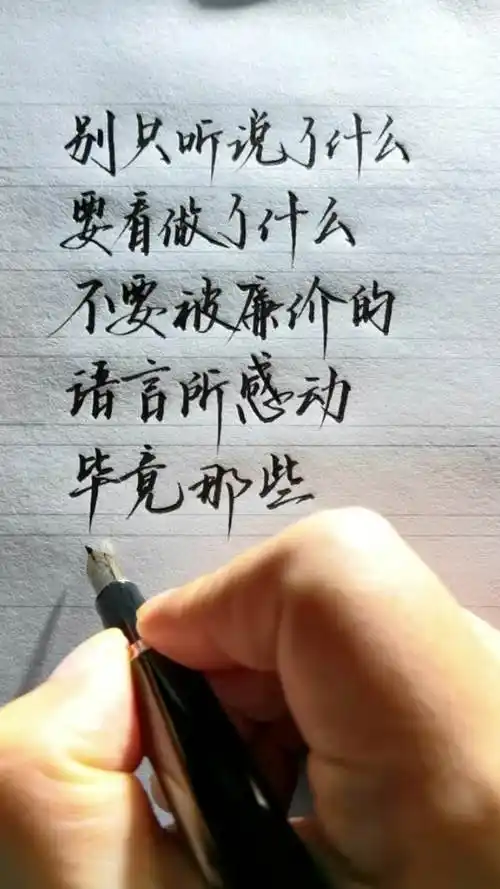 别只听说了什么
要看做了什么
不要被廉价的
语言所感动
毕竟那些